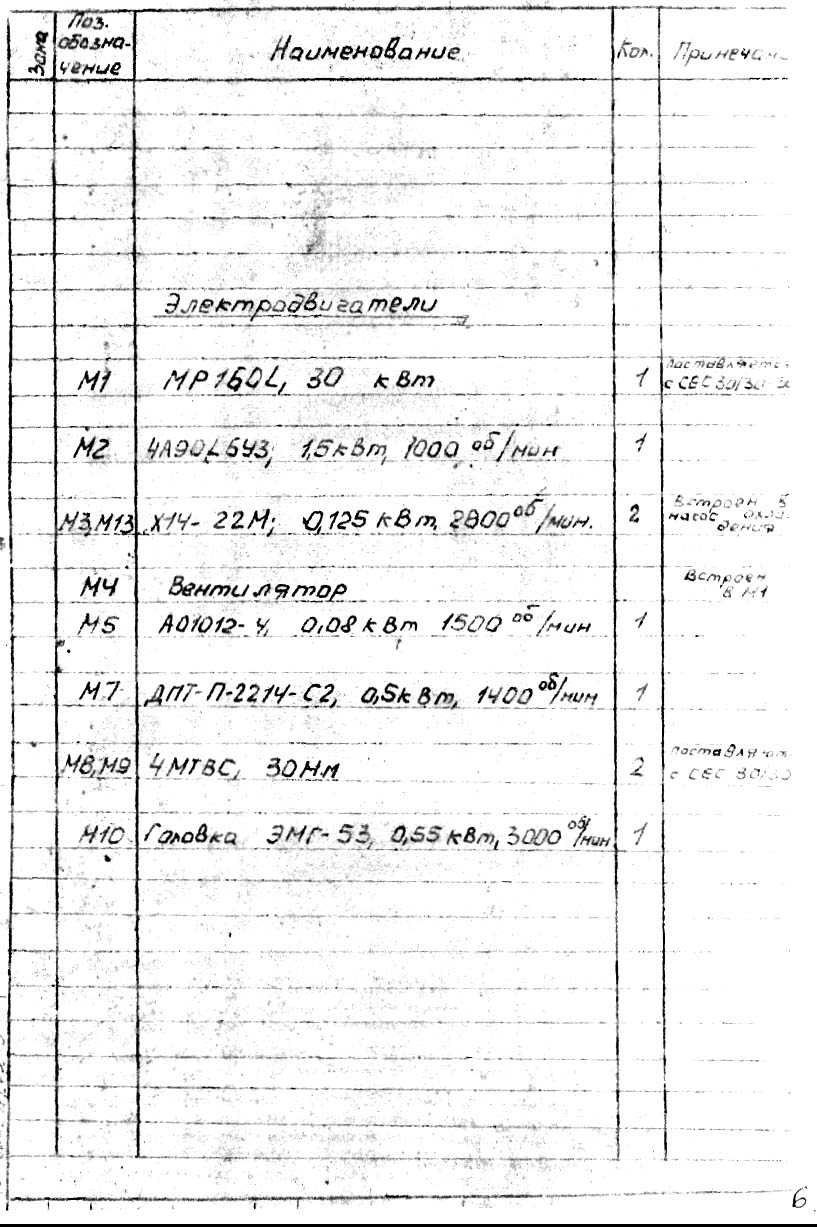 Зона Поз. обозна- чение Наименование Кол. Примечан
Электродвигатели
М1 МР160L, 30 кВт 1 поставляется с СЕС 30/30
М2 4А90L6У3; 1,5кВт, 1000 об/мин 1
М3,М13 Х14-22М; 0,125 кВт, 2800 об/мин. 2 Встроен в насос охла- дения
М4 Вентилятор Встроен в М1
М5 АО1012-4, 0,08 кВт 1500 об/мин 1
М7 ДПТ-П-2214-С2, 0,5кВт, 1400 об/мин 1
М8,М9 4МТВС, 30Нм 2 поставляют с СЕС 30/30
М10 Головка ЭМГ-53, 0,55 кВт, 3000 об/мин. 1
6